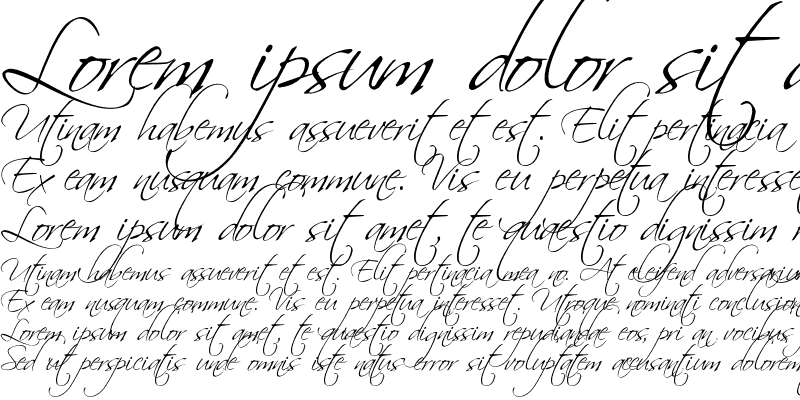 Lorem ipsum dolor sit a
Utinam habemus assueverit et est. Elit pertinacia
Ex eam nusquam commune. Vis eu perpetua interesse
Lorem ipsum dolor sit amet, te quaestio dignissim r
Utinam habemus assueverit et est. Elit pertinacia mea no. At eleifend adversarium
Ex eam nusquam commune. Vis eu perpetua interesset. Utroque nominati conclusion
Lorem ipsum dolor sit amet, te quaestio dignissim repudiandae eos, pri an vocibus
Sed ut perspiciatis unde omnis iste natus error sit voluptatem accusantium dolorem